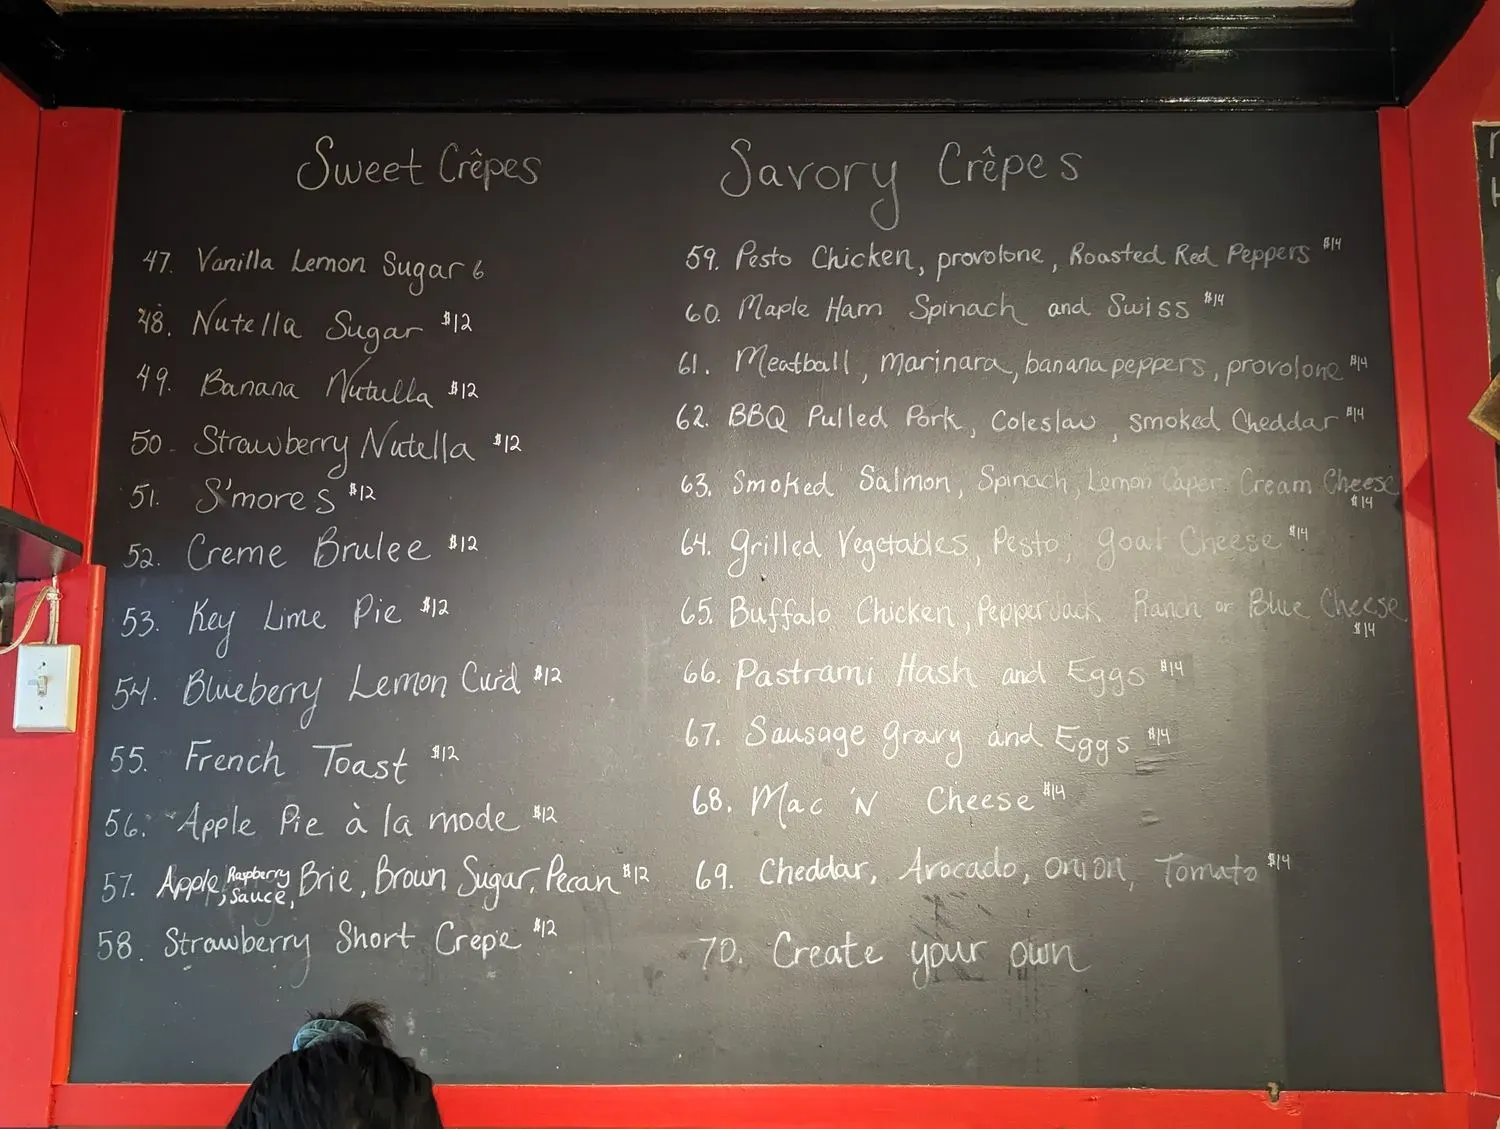 Sweet Crêpes
47. Vanilla Lemon Sugar 6
48. Nutella Sugar $12
49. Banana Nutulla $12
50. Strawberry Nutella $12
51. S'mores $12
52. Creme Brulee $12
53. Key Lime Pie $12
54. Blueberry Lemon Curd $12
55. French Toast $12
56. Apple Pie à la mode $12
57. Apple, Raspberry Sauce, Brie, Brown Sugar, Pecan $12
58. Strawberry Short Crepe $12
Savory Crêpes
59. Pesto Chicken, provolone, Roasted Red Peppers $14
60. Maple Ham Spinach and Swiss $14
61. Meatball, marinara, banana peppers, provolone $14
62. BBQ Pulled Pork, Coleslaw, smoked Cheddar $14
63. Smoked Salmon, Spinach, Lemon Caper Cream Cheese
$14
64. grilled Vegetables, Pesto, goat Cheese $14
65. Buffalo Chicken, Pepper Jack Ranch or Blue Cheese
$14
66. Pastrami Hash and Eggs $14
67. Sausage gravy and Eggs $14
68. Mac 'N Cheese $14
69. Cheddar, Avocado, onion, Tomato $14
70. Create your own